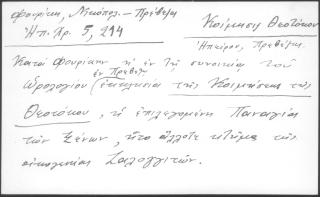 Φουρίκη, Νικόπολ. - Πρέβεζα
Ἠπ. Χρ. 5, 294
Κοίμησις Θεοτόκου
Ἤπειρος, Πρέβεζα.
Κατὰ Φουρίκην ἡ ἐν τῇ συνοικίᾳ τοῦ
ἐν Πρεβέζῃ
ὡρολογίου (ἐκκλησία τῆς Κοιμήσεως τῆς
Θεοτόκου, ἡ ἐπιλεγομένη Παναγία
τῶν Ξένων, ἦτο ἄλλοτε κτῆμα τῆς
οἰκογενείας Σαλογγιτῶν.